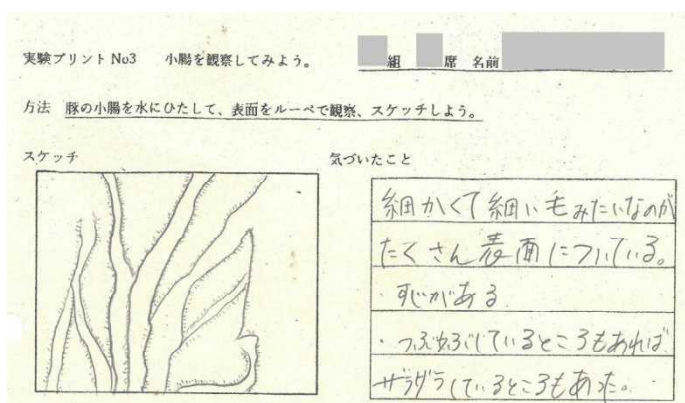 実験プリント No3 小腸を観察してみよう。 組 席 名前
方法 豚の小腸を水にひたして、表面をルーペで観察、スケッチしよう。
スケッチ
気づいたこと
細かくて細い毛みたいなのが
たくさん表面についている。
・すじがある
・つぶつぶしているところもあれば
ザラザラしているところもあった。